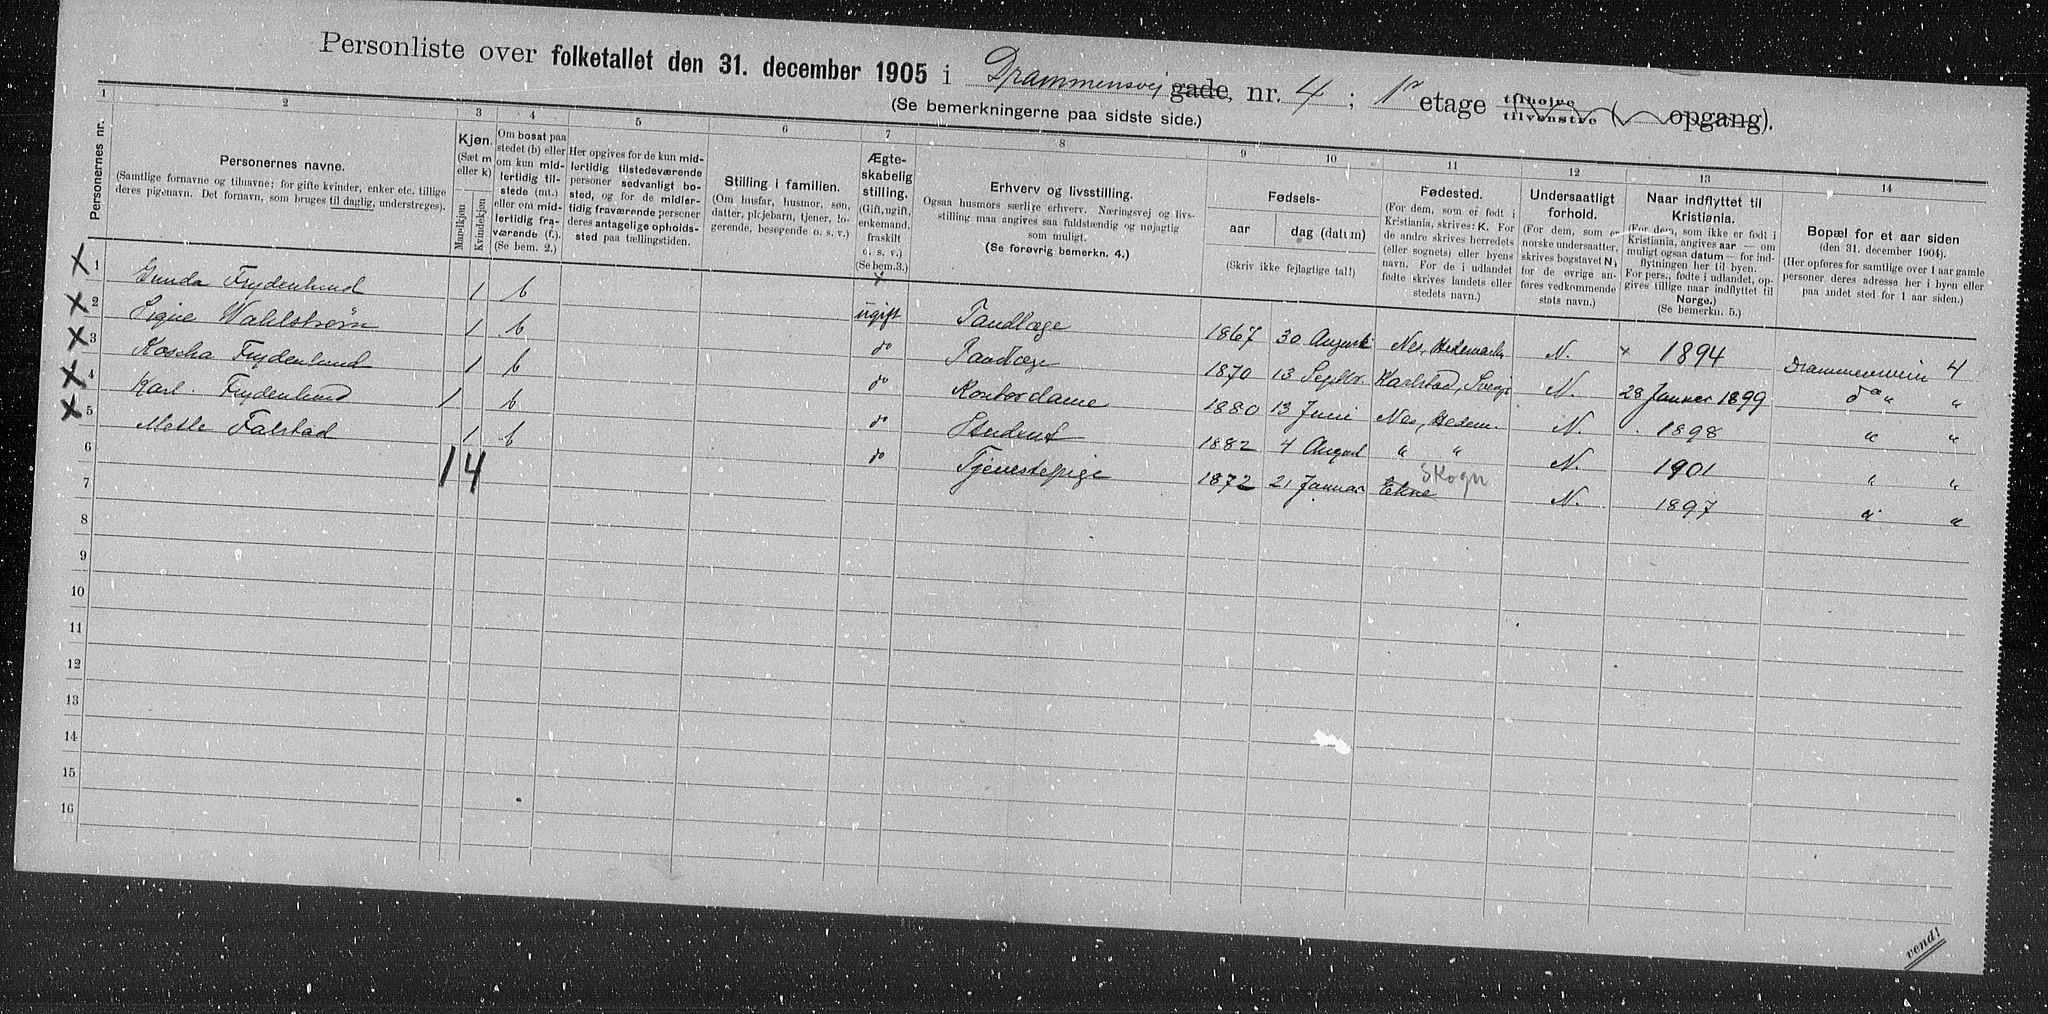 Personliste over folketallet den 31. december 1905 i Drammensvej gade, nr. 4 ; 1ste etage tilhøire tilvenstre ( opgang).
(Se bemerkningerne paa sidste side.)
1 2 3 4 5 6 7 8 9 10 11 12 13 14
Personernes nr.
Personernes navne.
(Samtlige fornavne og tilnavne; for gifte kvinder, enker etc. tillige deres pigenavn. Det fornavn, som bruges til daglig, understreges).
Kjøn.
(Sæt m eller k)
Mandkjøn
Kvindekjøn
Om bosat paa stedet (b) eller om kun midlertidig tilstede (mt.) eller om midlertidig fraværende (f.).
(Se bem. 2.)
Her opgives for de kun midlertidig tilstedeværende personer sedvanligt bosted, og for de midlertidig fraværende personer deres antagelige opholdssted paa tællingstiden.
Stilling i familien.
(Om husfar, husmor, søn, datter, plejebarn, tjener, logerende, besøgende o. s. v.)
Ægteskabelig stilling.
(Gift, ugift, enkemand, fraskilt o. s. v.)
(Se bem.3.)
Erhverv og livsstilling.
Ogsaa husmors særlige erhverv. Næringsvej og livsstilling maa angives saa fuldstændig og nøjagtig som muligt.
(Se forøvrig bemerkn. 4.)
Fødsels-
aar
dag (datum)
(Skriv ikke fejlagtige tal!)
Fødested.
(For dem, som er født i Kristiania, skrives: K. For de andre skrives herredets (eller sognets) eller byens navn. For de i udlandet fødte skrives landets eller stedets navn.)
Undersaatligt forhold.
(For dem, som er norske undersaatter, skrives bogstavet N; for de øvrige anføres vedkommende stats navn.)
Naar indflyttet til Kristiania.
(For dem, som ikke er født i Kristiania, angives aar — om muligt ogsaa datum — for indflytningen her til byen. For pers., fødte i udlandet, opgives tillige naar indflyttet til Norge.)
(Se bemerkn. 5.)
Bopæl for et aar siden
(den 31. december 1904).
(Her opføres for samtlige over 1 aar gamle personer deres adresse her i byen eller paa andet sted for 1 aar siden.)
X 1 Gunda Frydenlund 1 b ugift Tandlæge 1867 30 August Nes, Hedemark N. x 1894 Drammensveien 4
X 2 Signe Wahlstrøm 1 b do Tandlæge 1870 13 Septbr. Karlstad, Sverige N. 28 Januar 1899 do " "
X 3 Frydenlund 1 b do Kontordame 1880 13 Juni Nes, Hedem. N. 1898 " "
X 4 Karl Frydenlund 1 b do Student 1882 4 August " " N. 1901 " "
X 5 Mette Falstad 1 b do Tjenestepige 1872 21 Januar Ekne Skogn N. 1897 " "
6 1 4
7
8
9
10
11
12
13
14
15
16
vend!